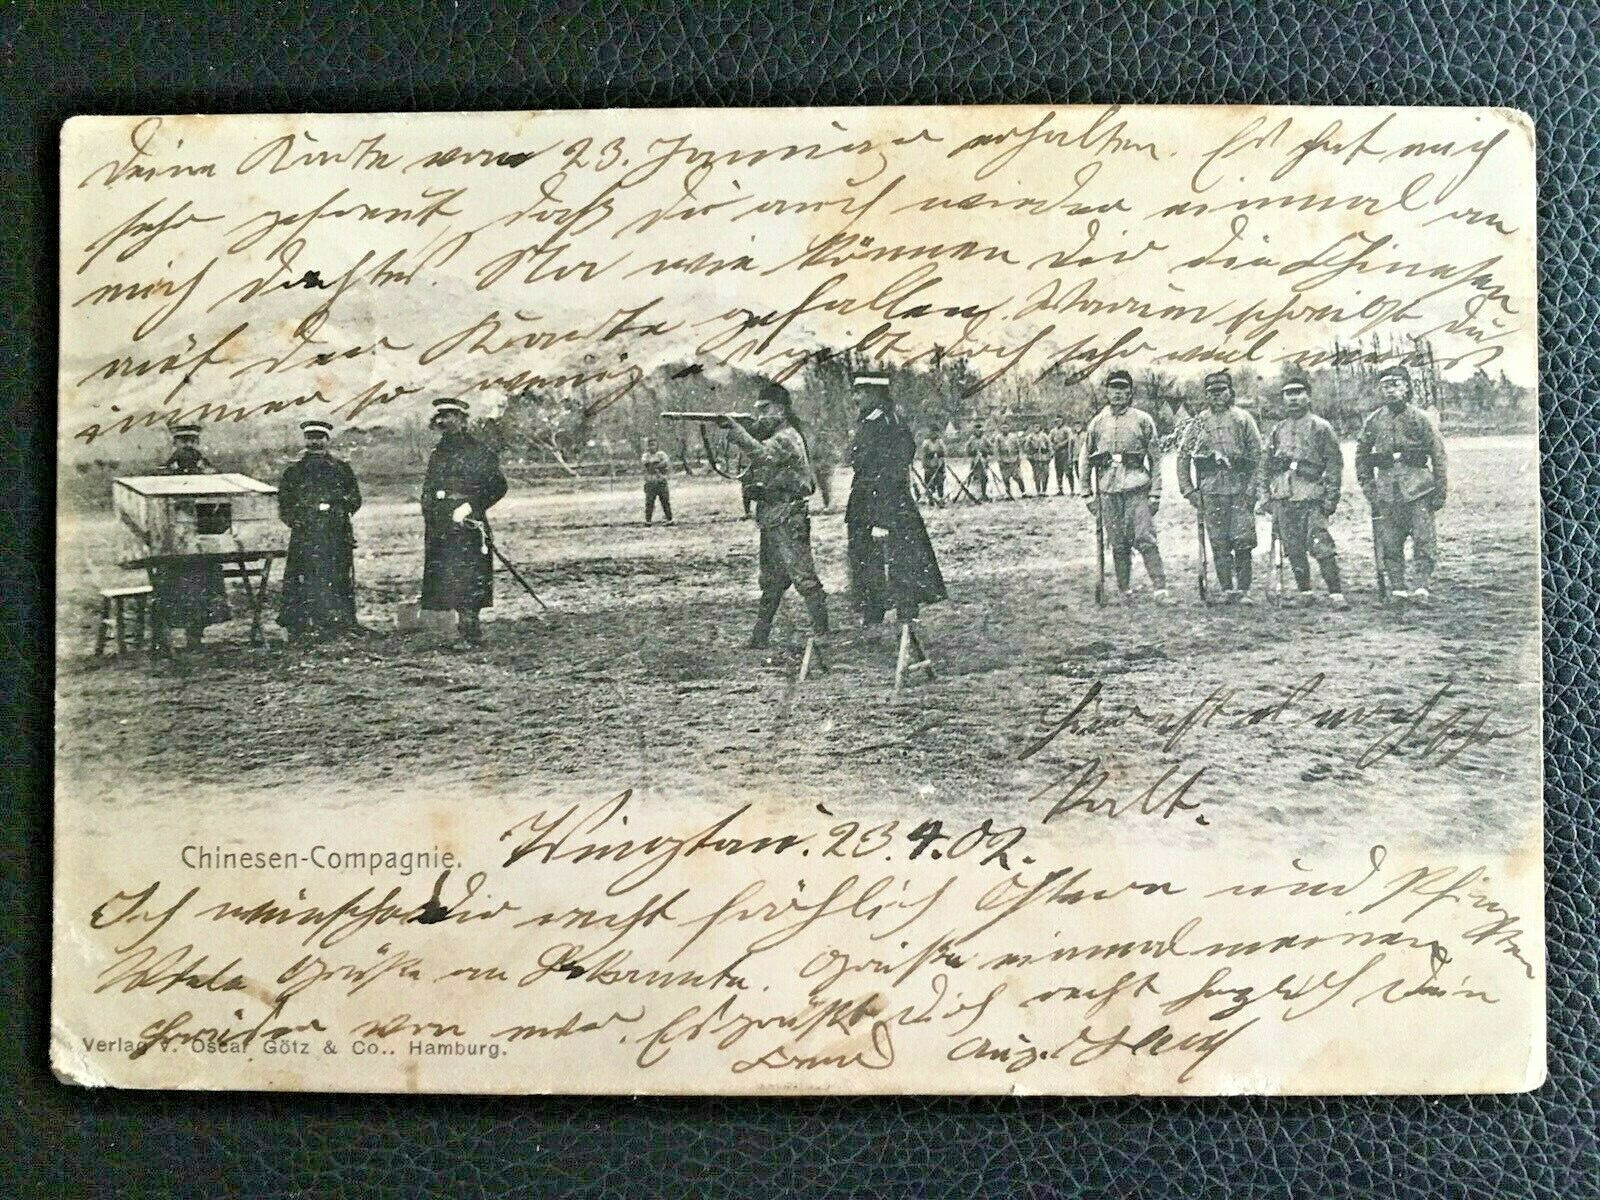 Deine Karte vom 23. Januar erhalten. Es hat mich
sehr gefreut, daß Du auch wieder einmal an
mich dachtest. Na wie können Dir die Chinesen
auf der Karte gefallen. Warum schreibst Du
immer so wenig es gibt doch sehr viel neues
Hier ist es noch sehr
kalt.
Chinesen-Compagnie. Tsingtau. 23.4.02.
Ich wünsche Dir recht fröhlich Ostern und Pfingsten
Viele Grüße an Bekannte. Grüße einmal meinen
Bruder von mir. Es grüßt Dich recht herzlich Dein
Verlag v. Oscar Götz & Co., Hamburg.
Freund Aug.